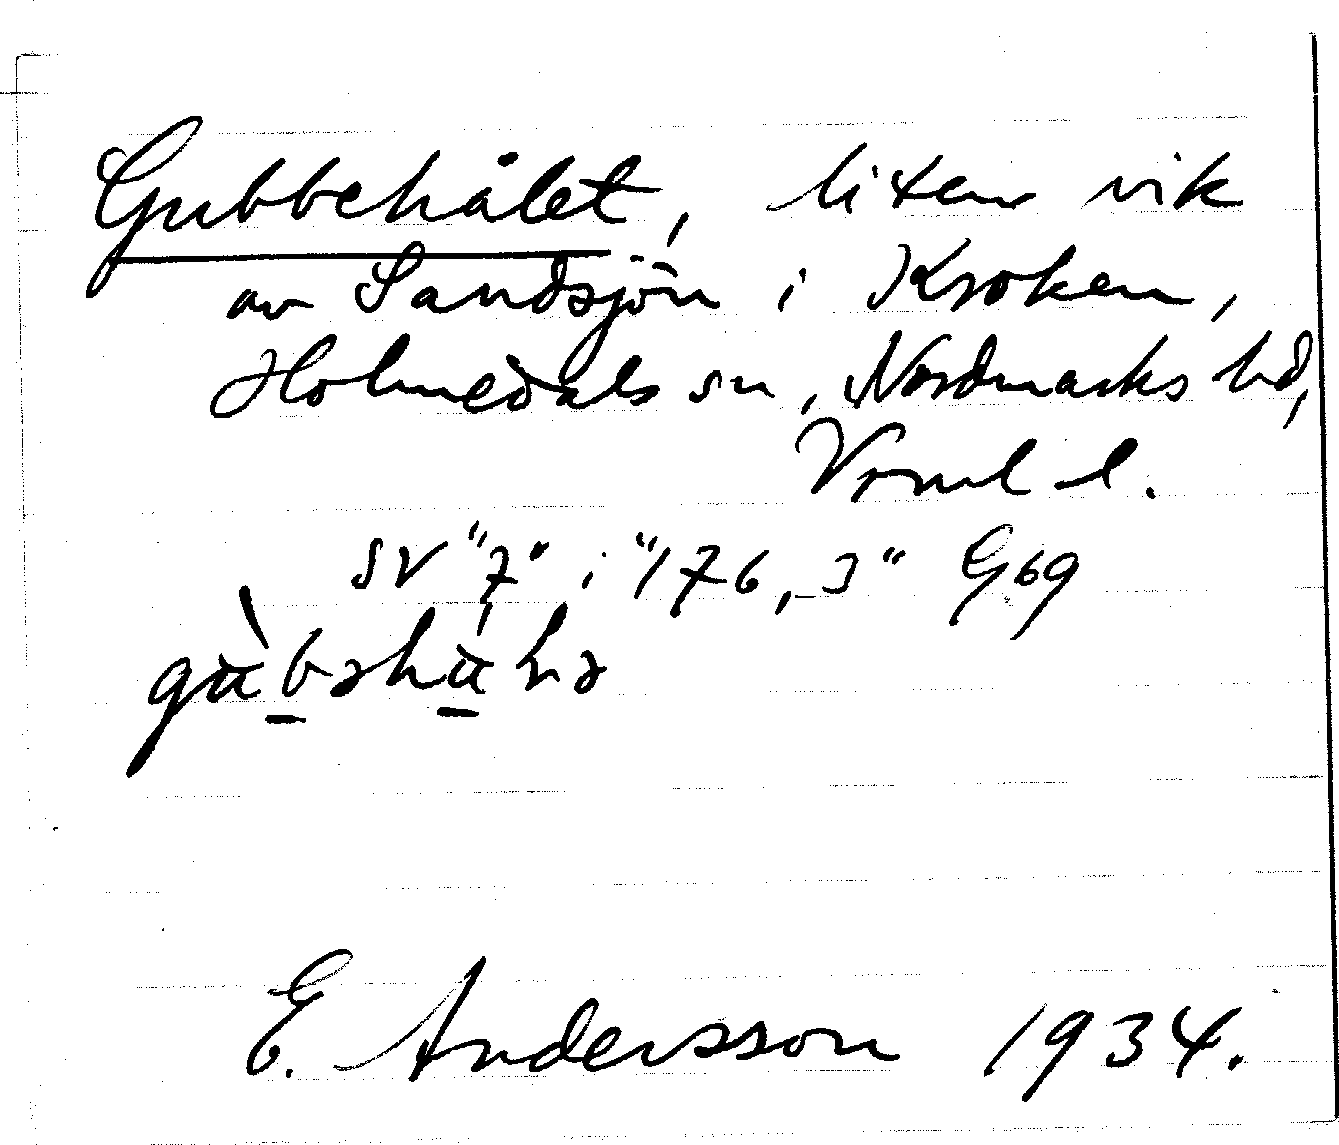 Gubbehålet, liten vik
av Sandsjön i Kroken,
Holmedals sn, Nordmarks hd,
Vrml l.
SV "7" i "176, 3" G69
E. Andersson 1934.